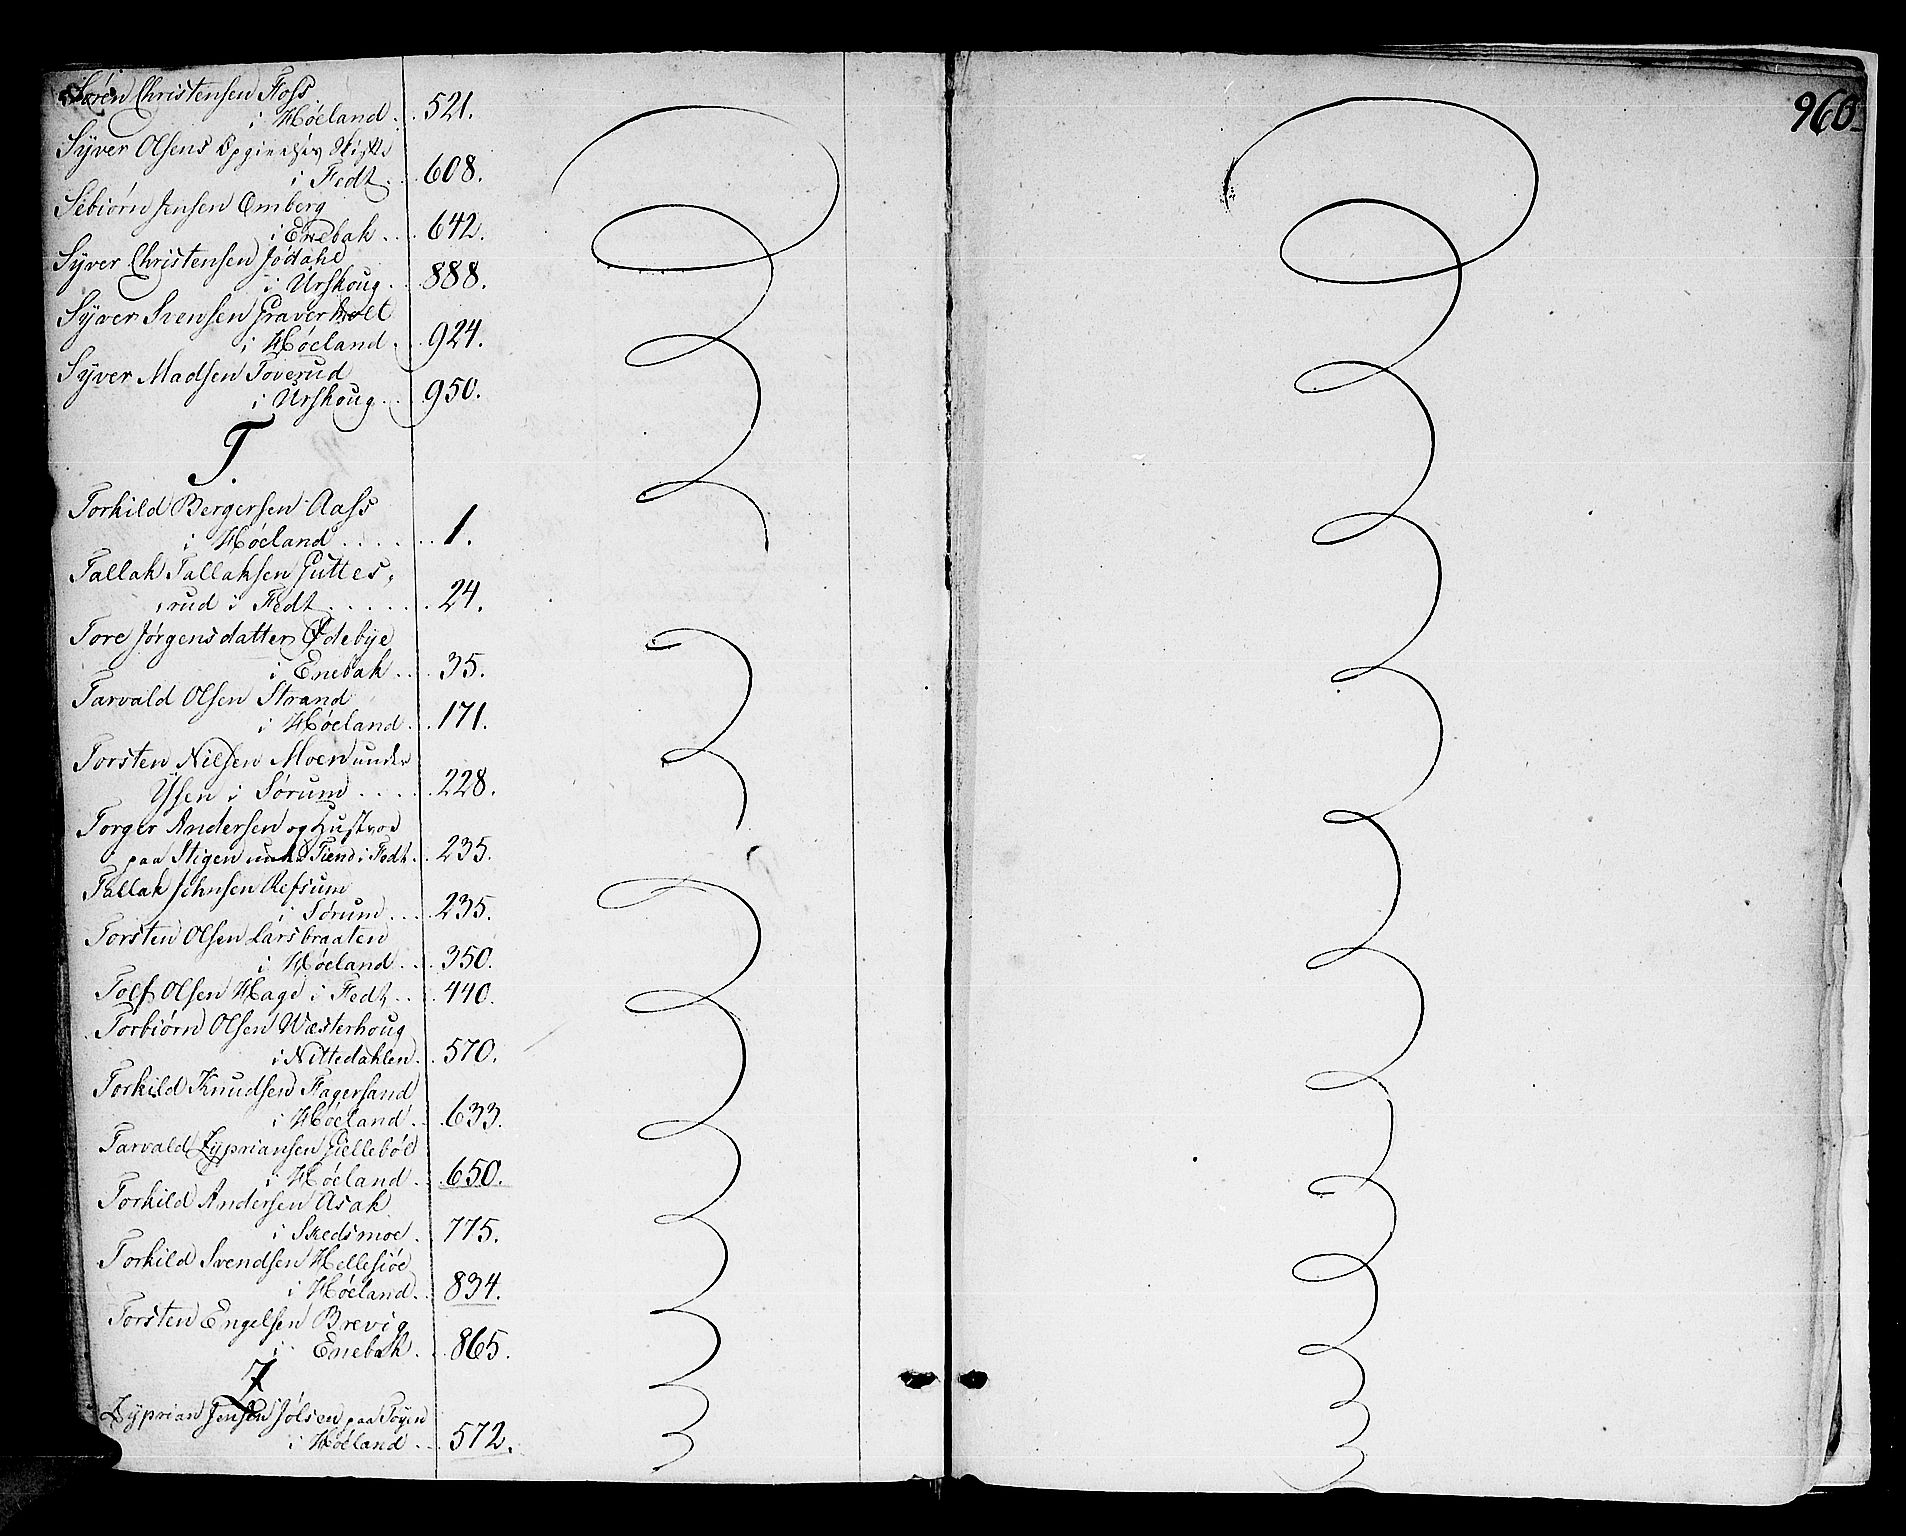 Søren Christensen Foss
i Høeland . . 521.
Syver Olsens Opgivelses Skifte
i Fedt . . 608.
Sebiørn Jensen Omberg
i Enebak . . . 642.
Syver Christensen Jødahl
i Urskoug . . 888.
Syver Svensen Graverholt
i Høeland . . 924.
Syver Madsen Toverud
i Urskoug . . 950.
T.
Torkild Bergersen Aass
i Høeland . . . . . . 1.
Tallak Tallaksen Guttes,
,rud i Fedt . . . . . . 24.
Tore Jørgensdatter Ødebye
i Enebak . . . 35.
Tarvald Olsen Strand
i Høeland . . 171.
Torsten Nilsen Moen under
Ysen i Sørum . . . . . 228.
Torger Andersen og Hustroe
paa Stigen under Tiend i Fedt . . 235.
Tallak Johnsen Refsum
i Sørum . . . 235.
Torsten Olsen Larsbraaten
i Høeland . . . 350.
Tolf Olsen Hage i Fedt . . . 440.
Torbiørn Olsen Wæsterhoug
i Nittedahlen . . 570.
Torkild Knudsen Fagersand
i Høeland . . 633.
Tarvald Zypriansen Giellebøl
i Høeland . . 650.
Torkild Andersen Asak
i Skedsmoe . 775.
Torkild Svendsen Hellesiøe
i Høeland . . 834.
Torsten Engelsen Brevig
i Enebak . . 865.
Z
Zyprian Jensen Jølsen paa Toyen
i Høeland . . . 572.
960